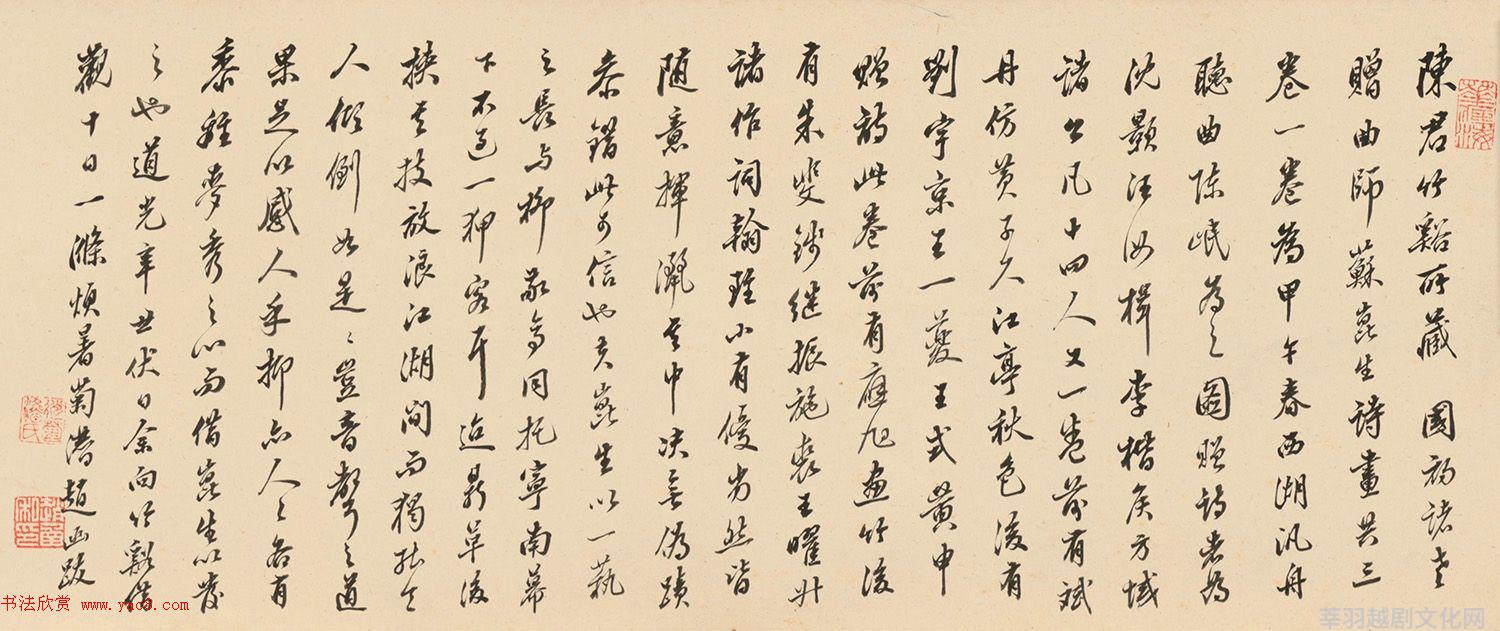 陳君竹谿所藏 國初諸老
贈曲師蘇崑生詩畫共三
卷一卷為甲午春西湖汎舟
聽曲陳岷為之圖贈詩者為
沈顥汪汝楫李楷侯方域
諸公凡十四人又一卷前有斌
丹仿黃子久江亭秋色後有
劉宇京王一夔王式黃申
贈詩此卷前有應旭畫竹後
有朱斐錢繼振施裘王曜升
諸作詞翰雖小有優劣然皆
随意揮灑其中决無偽蹟
叅錯此可信也夫崑生以一藝
之長与柳敬亭同托寧南幕
下不過一狎客耳迨鼎革後
挾其技放浪江湖間而獨能令
人傾倒如是〻豈音聲之道
果足以感人乎抑亦人之各有
黍離麥秀之心而借崑生以發
之也道光辛丑伏日余向竹谿借
觀十日一滌煩暑菊潜趙函跋
书法欣赏 www.yac8.com
莘羽越剧文化网